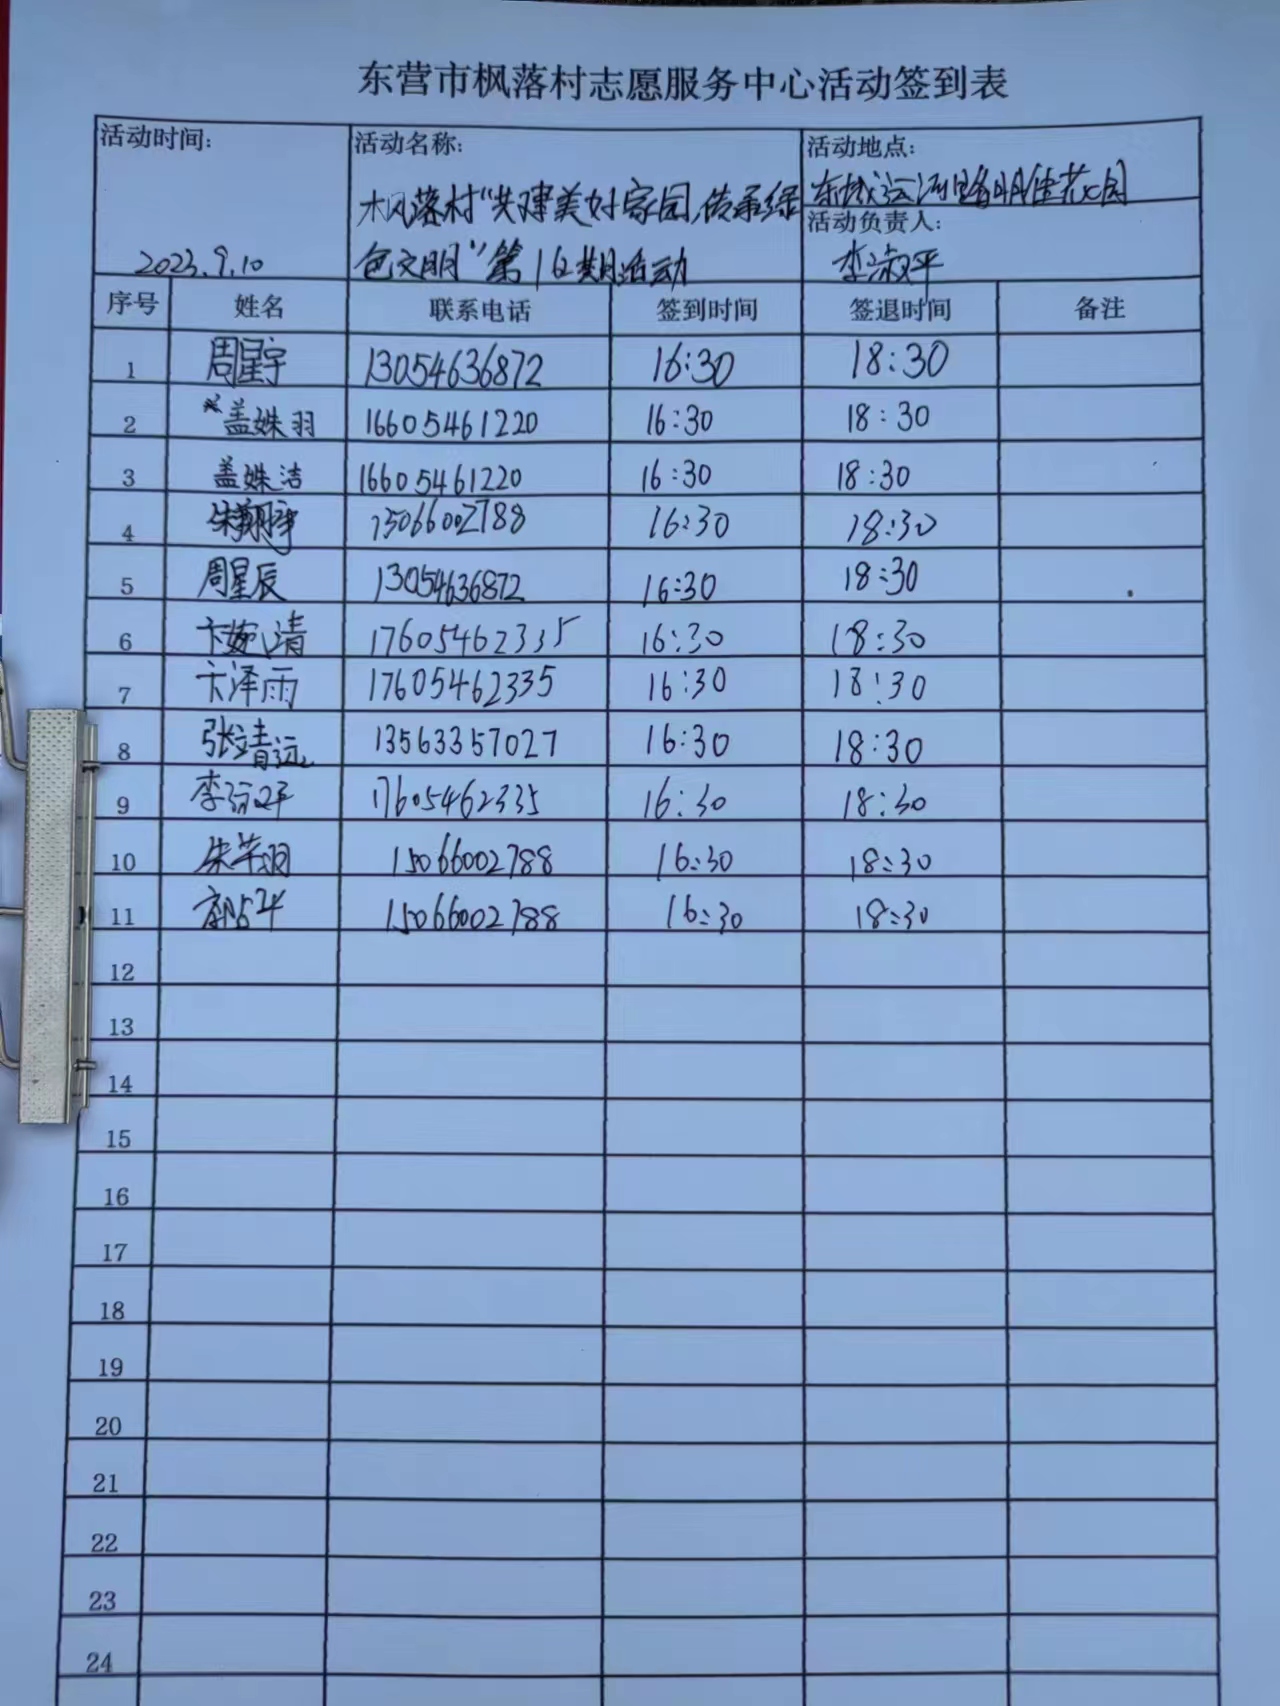 东营市枫落村志愿服务中心活动签到表
活动时间: 活动名称: 活动地点:
枫落村“共建美好家园,传承绿 东城运河路明佳花园
活动负责人:
2023.9.10 色文明”第12期活动 李淑平
序号 姓名 联系电话 签到时间 签退时间 备注
1 周星宇 13054636872 16:30 18:30
2 盖姝羽 16605461220 16:30 18:30
3 盖姝洁 16605461220 16:30 18:30
4 朱翔宇 15066002788 16:30 18:30
5 周星辰 13054636872 16:30 18:30
6 卞婉清 17605462335 16:30 18:30
7 卞泽雨 17605462335 16:30 18:30
8 张靖远 13563357027 16:30 18:30
9 李淑平 17605462335 16:30 18:30
10 朱芊羽 15066002788 16:30 18:30
11 15066002788 16:30 18:30
12
13
14
15
16
17
18
19
20
21
22
23
24